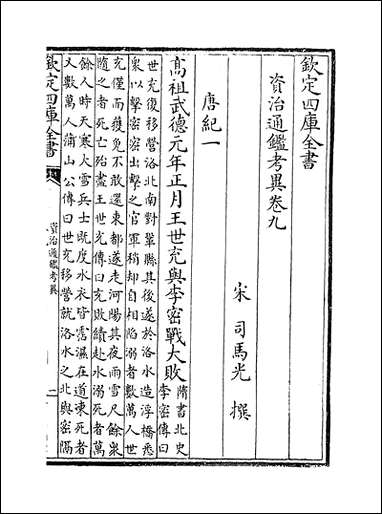 欽定四庫全書
資治通鑑考異卷九
宋 司馬光 撰
唐紀一
高祖武德元年正月王世充與李密戰大敗
隋書北史
李密傳曰
世充復移營洛北南對鞏縣其後遂於洛水造浮橋悉
衆以擊密密出擊之官軍稍却自相陷溺者數萬人世
充僅而獲免不敢還東都遂走河陽其夜雨雪尺餘衆
隨之者死亡殆盡王世充傳曰充敗績赴水溺死者萬
餘人時天寒大雪兵士既度水衣皆霑濕在道凍死者
又數萬人蒲山公傳曰世充移營就洛水之北與密隔
欽定四庫全書
資治通鑑考異
一